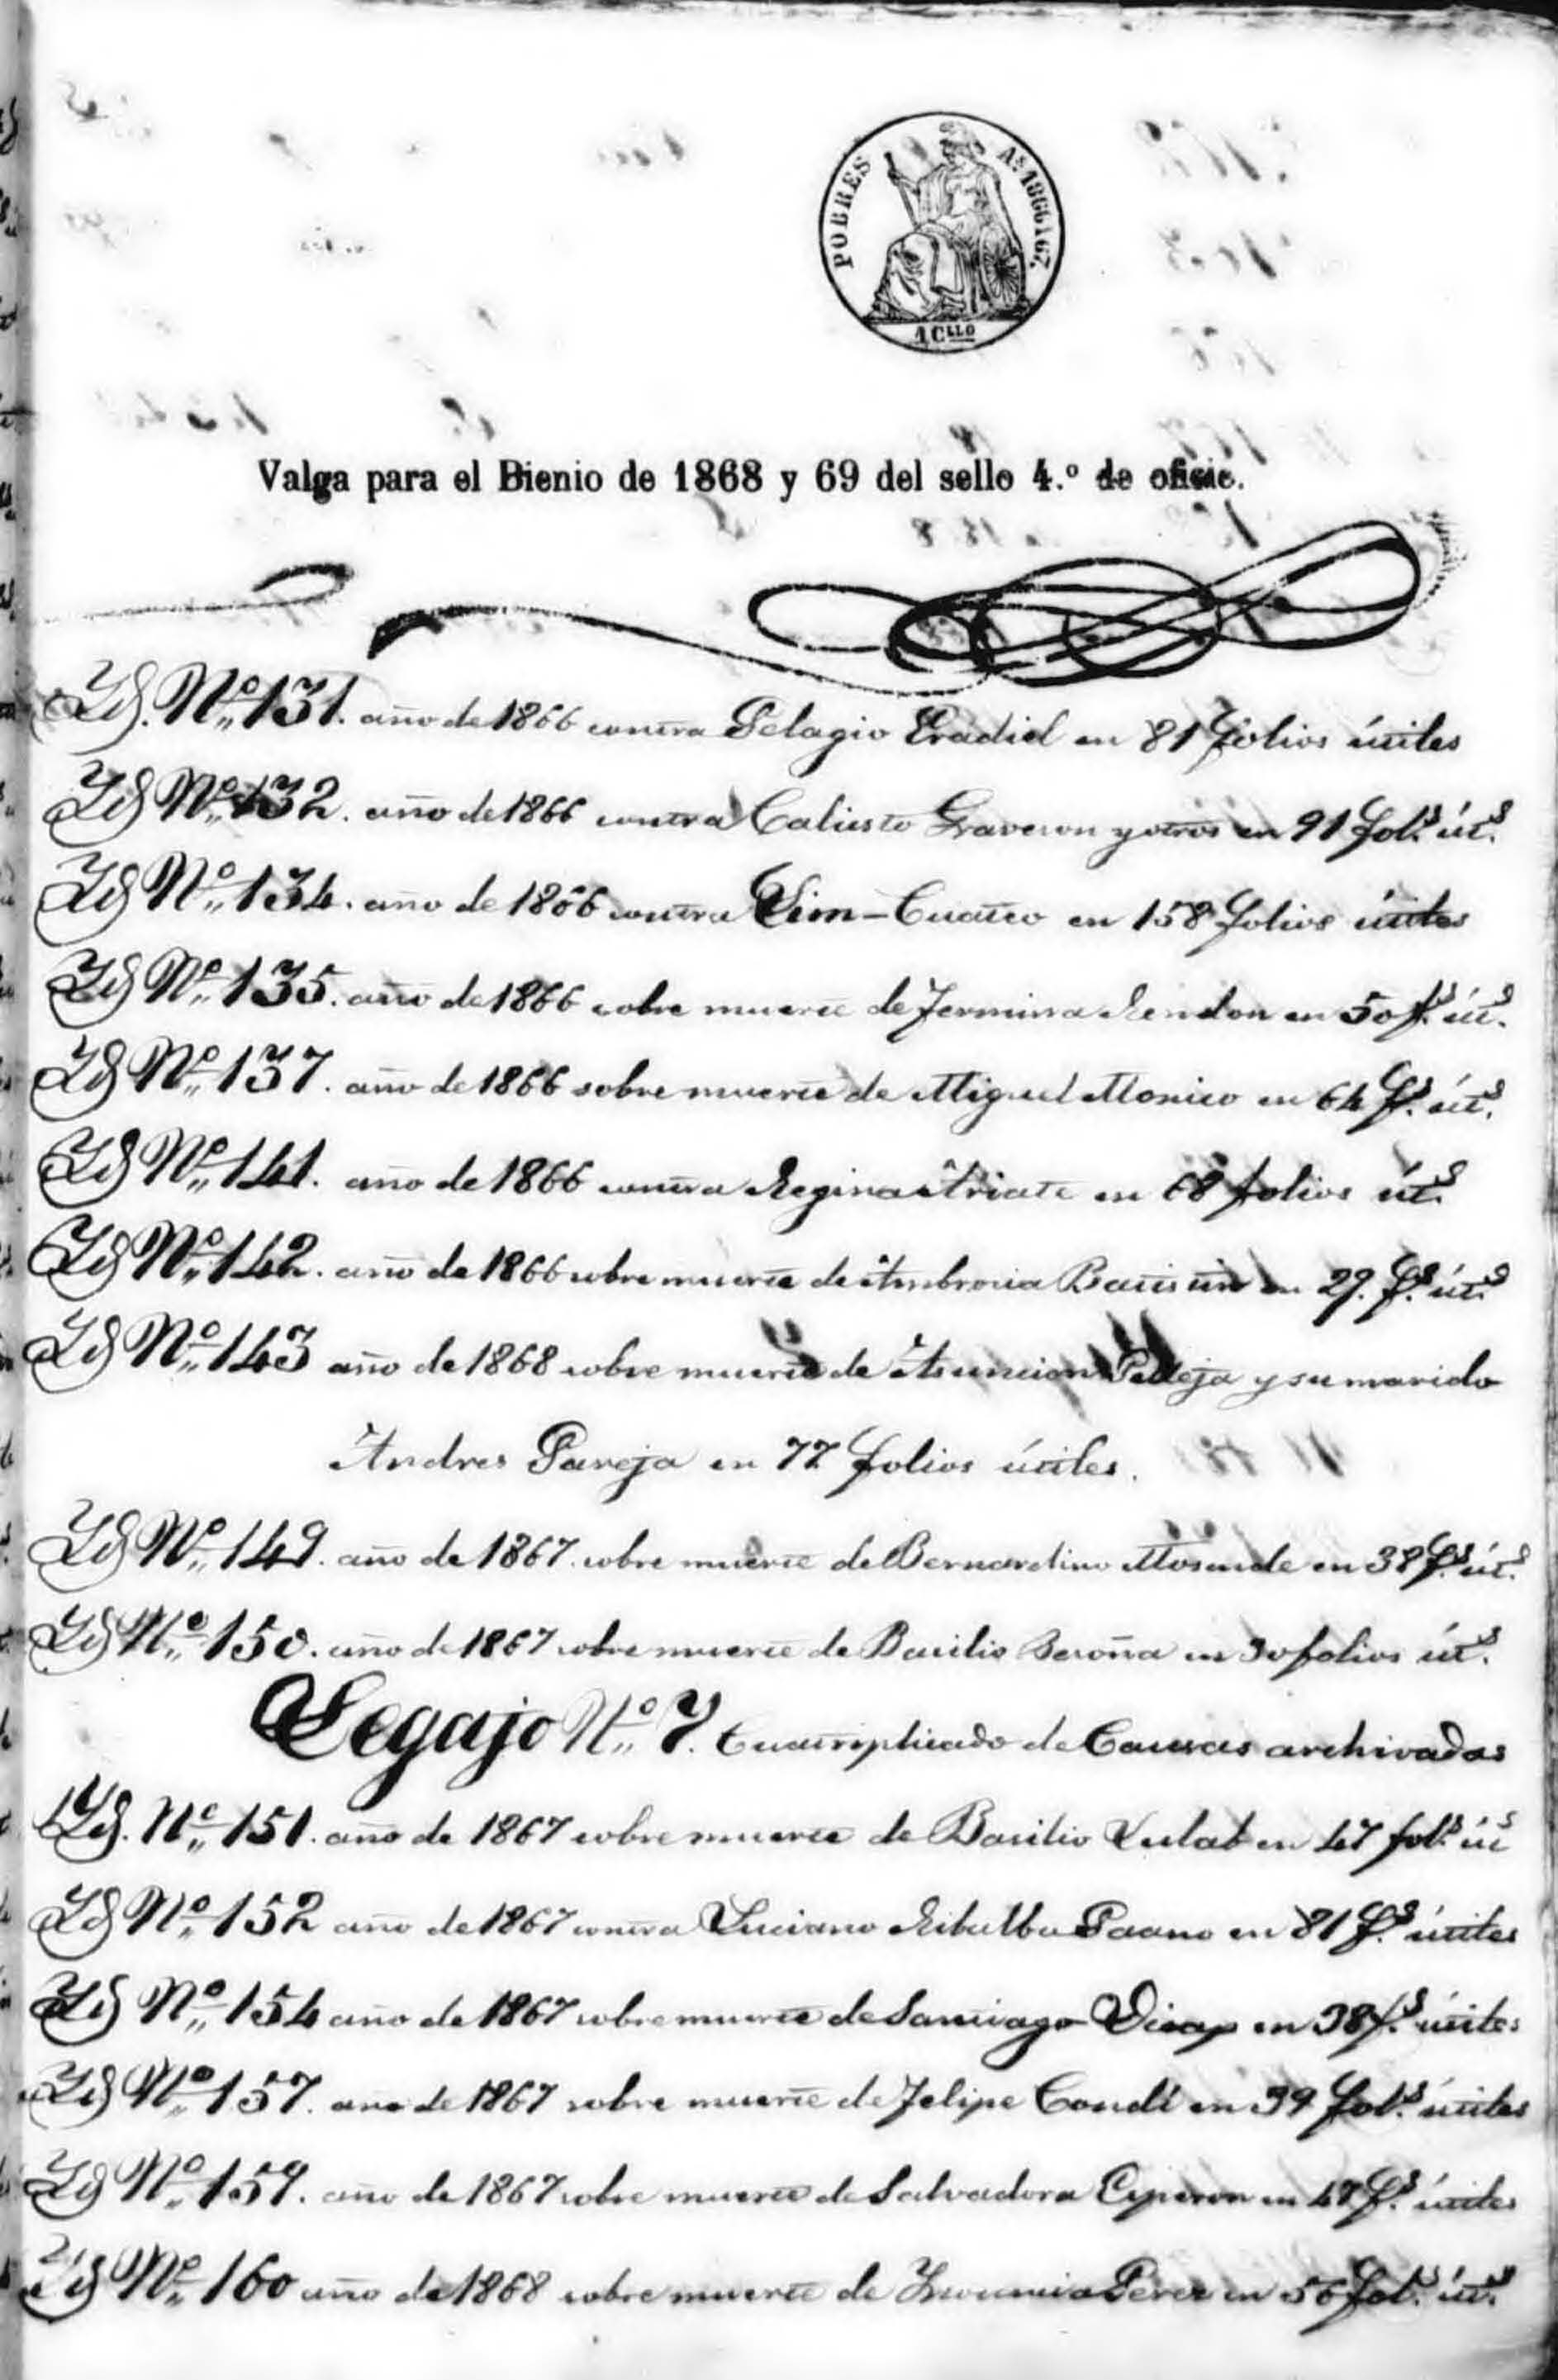 POBRES Aˢ 1866 y 67.
10 Cˡˡᵒ
Valga para el Bienio de 1868 y 69 del sello 4.º de oficio.
Yd. Nº 131. año de 1866 contra Pelagio Eradiel en 81 folios útiles
Yd Nº 132. año de 1866 contra Calisto Graveron y otros en 91 folˢ útˢ
Yd Nº 134. año de 1866 contra Sim-Cuatco en 158 folios útiles
Yd Nº 135. año de 1866 sobre muerte de Fermina Rendon en 50 fˢ útˢ
Yd Nº 137. año de 1866 sobre muerte de Miguel Monico en 64 fˢ útˢ
Yd Nº 141. año de 1866 contra Regina Atriate en 68 folios útˢ
Yd Nº 142. año de 1866 sobre muerte de Ambrosia en 29. fˢ útˢ
Yd Nº 143 año de 1868 sobre muerte de Asuncion Palleja y su marido
Andres Pareja en 77 folios útiles.
Yd Nº 149. año de 1867. sobre muerte de Bernardino Mosende en 38 fˢ útˢ
Yd Nº 150. año de 1867 sobre muerte de Basilio Beroña en 30 folios útˢ
Legajo Nº 7. Cuatriplicado de Causas archivadas
Yd. Nº 151. año de 1867 sobre muerte de Basilio en 47 folˢ út
Yd Nº 152 año de 1867 contra Luciano Ribalba Paano en 81 fˢ útiles
Yd Nº 154 año de 1867 sobre muerte de Santiago Dicap en 38 fˢ útiles
Yd Nº 157. año de 1867 sobre muerte de Felipe Condí en 39 folˢ útiles
Yd Nº 159. año de 1867 sobre muerte de Salvadora Ceperon en 47 fˢ útiles
Yd Nº 160 año de 1868 sobre muerte de Inocencia Perez en 56 folˢ útˢ